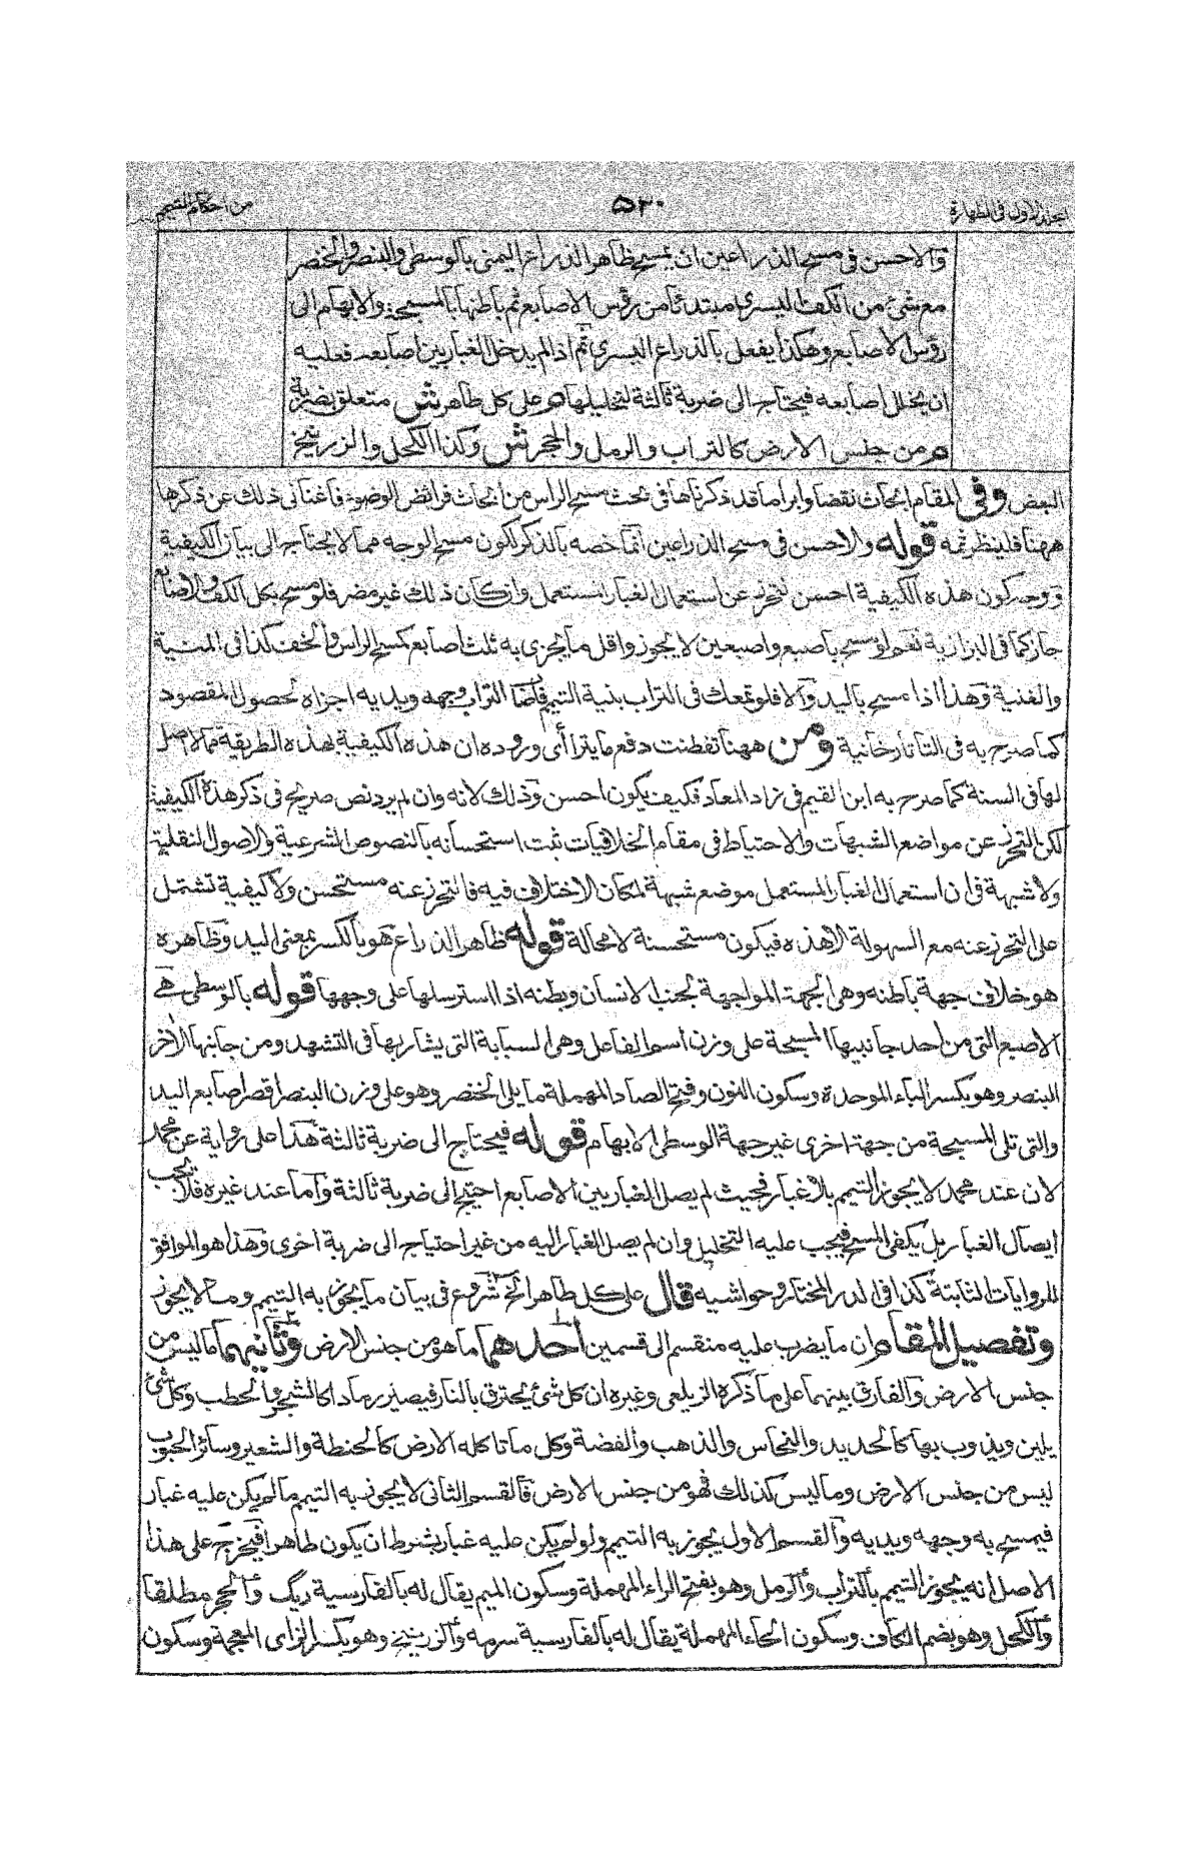 المجلد الاول فى الطهارة
۵۲۰
من احكام التيمم
والاحسن فى مسح الذراعين ان يمسح ظاهر الذراع اليمنى بالوسطى والبنصر والخنصر
مع شئ من الكف اليسرى مبتدئا من رؤس الاصابع ثم باطنها بالمسبحة والابهام الى
رؤس الاصابع وهكذا يفعل بالذراع اليسرى ثم اذا لم يدخل الغبار بين اصابعه فعليه
ان يخلل اصابعه فيحتاج الى ضربة ثالثة لتخليلها م على كل طاهر ش متعلق بضربة
م من جنس الارض كالتراب والرمل والحجر ش وكذا الكحل والزرنيخ
البعض وفى المقام ابحاث نقضا وابراما قد ذكرناها فى بحث مسح الراس من ابحاث فرائض الوضوء فاغنانى ذلك عن ذكرها
ههنا فلينظر ثمه قوله والاحسن فى مسح الذراعين انما خصه بالذكر لكون مسح الوجه مما لا يحتاج الى بيان الكيفية
ووجه كون هذه الكيفية احسن لتحرز عن استعمال الغبار المستعمل وان كان ذلك غير مضر فلو مسح بكل الكف والاصابع
جاز كما فى البزازية نعم لو مسح باصبع واصبعين لا يجوز واقل ما يجزى به ثلث اصابع كمسح الراس والخف كذا فى المنية
والغنية وهذا اذا مسح باليد والا فلو تمعك فى التراب بنية التيمم فاصاب التراب وجهه ويديه اجزاه لحصول المقصود
كما صرح به فى التاتارخانية ومن ههنا تفطنت دفع ما يترا أى وروده ان هذه الكيفية بهذه الطريقة مما لا اصل
لها فى السنة كما صرح به ابن القيم فى زاد المعاد فكيف يكون احسن وذلك لانه وان لم يرد نص صريح فى ذكر هذه الكيفية
لكن التحرز عن مواضع الشبهات والاحتياط فى مقام الخلافيات ثبت استحسانه بالنصوص الشرعية والاصول النقلية
ولا شبهة فى ان استعمال الغبار المستعمل موضع شبهة لمكان الاختلاف فيه فالتحرز عنه مستحسن ولا كيفية تشتمل
على التحرز عنه مع السهولة الا هذه فيكون مستحسنة لا محالة قوله ظاهر الذراع هو بالكسر بمعنى اليد وظاهره
هو خلاف جهة باطنه وهى الجهة المواجهة لجنب الانسان وبطنه اذا استرسلها على وجهها قوله بالوسطى هى
الاصبع التى من احد جانبيها المسبحة على وزن اسم الفاعل وهى السبابة التى يشار بها فى التشهد ومن جانبها الاخر
البنصر وهو بكسر الباء الموحدة وسكون النون وفتح الصاد المهملة ما يلى الخنصر وهو على وزن البنصر اقصر اصابع اليد
والتى تلى المسبحة من جهة اخرى غير جهة الوسطى الابهام قوله فيحتاج الى ضربة ثالثة هذا على رواية عن محمد
لان عند محمد لا يجوز التيمم بلا غبار فحيث لم يصل الغبار بين الاصابع احتيج الى ضربة ثالثة واما عند غيره فلا يجب
ايصال الغبار بل يكفى المسح فيجب عليه التخليل وان لم يصل الغبار اليه من غير احتياج الى ضربة اخرى وهذا هو الموافق
للروايات الثابتة كذا فى الدر المختار وحواشيه قال على كل طاهر الخ شروع فى بيان ما يجوز به التيمم وما لا يجوز
وتفصيل المقام ان ما يضرب عليه منقسم الى قسمين احدهما ما هو من جنس الارض وثانيهما ما ليس من
جنس الارض والفارق بينهما على ما ذكره الزيلعى وغيره ان كل شئ يحترق بالنار فيصير رمادا كالشجر والحطب وكل شئ
يلين ويذوب بها كالحديد والنحاس والذهب والفضة وكل ما تاكله الارض كالحنطة والشعير وسائر الحبوب
ليس من جنس الارض وما ليس كذلك فهو من جنس الارض فالقسم الثانى لا يجوز به التيمم ما لم يكن عليه غبار
فيمسح به وجهه ويديه والقسم الاول يجوز به التيمم ولو لم يكن عليه غبار بشرط ان يكون طاهرا فيخرج على هذا
الاصل انه يجوز التيمم بالتراب والرمل وهو بفتح الراء المهملة وسكون الميم يقال له بالفارسية ريگ والحجر مطلقا
والكحل وهو بضم الكاف وسكون الحاء المهملة يقال له بالفارسية سرمه والزرنيخ وهو بكسر الزاى المعجمة وسكون